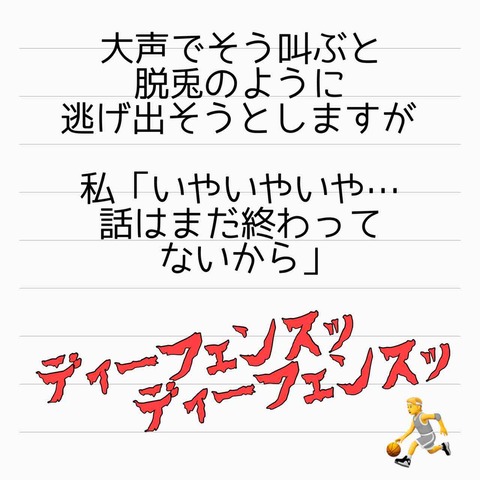 大声でそう叫ぶと
脱兎のように
逃げ出そうとしますが
私「いやいやいや…
話はまだ終わって
ないから」
ディーフェンスッ
ディーフェンスッ